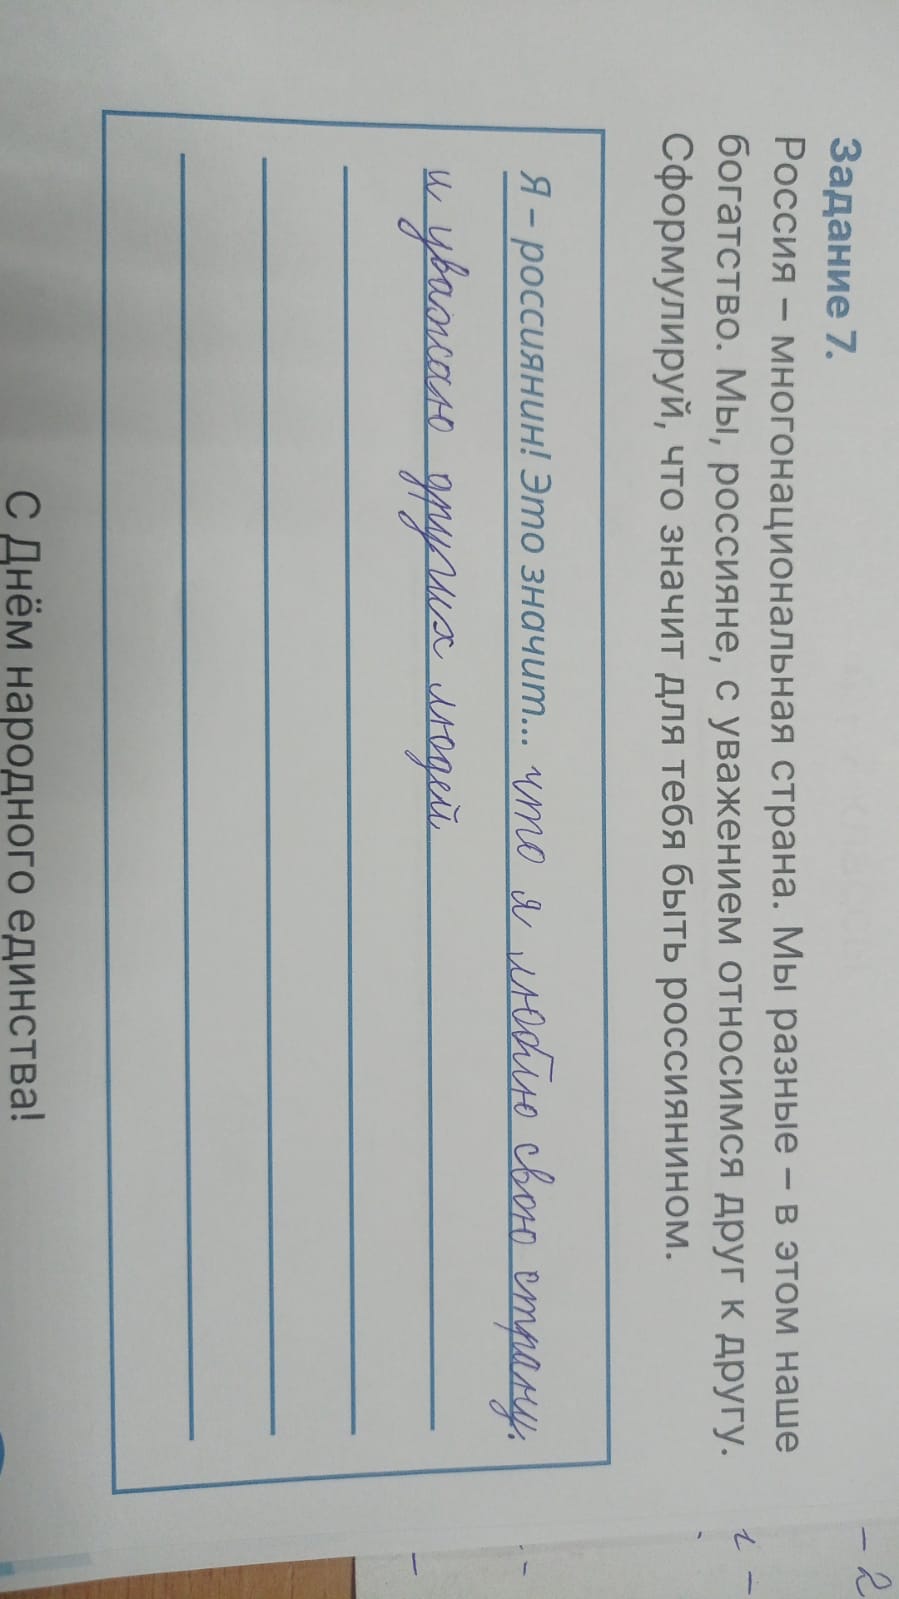 Задание 7.
Россия – многонациональная страна. Мы разные – в этом наше
богатство. Мы, россияне, с уважением относимся друг к другу.
Сформулируй, что значит для тебя быть россиянином.
Я – россиянин! Это значит... что я люблю свою страну.
и уважаю других людей
С Днём народного единства!
- 2